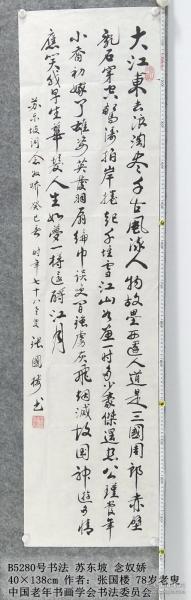 大江東去浪淘尽千古風流人物故壘西邊人道是三國周郎赤壁
亂石穿空驚濤拍岸捲起千堆雪江山如畫一時多少豪傑遥想公瑾當年
小喬初嫁了雄姿英發羽扇綸巾談笑間強虜灰飛烟滅故國神遊多情
應笑我早生華髮人生如夢一樽還酹江月
苏东坡词念奴娇癸巳春 时年七十八老叟 张國楼书
B5280号书法 苏东坡 念奴娇
40×138cm 作者：张国楼 78岁老叟
中国老年书画学会书法委员会